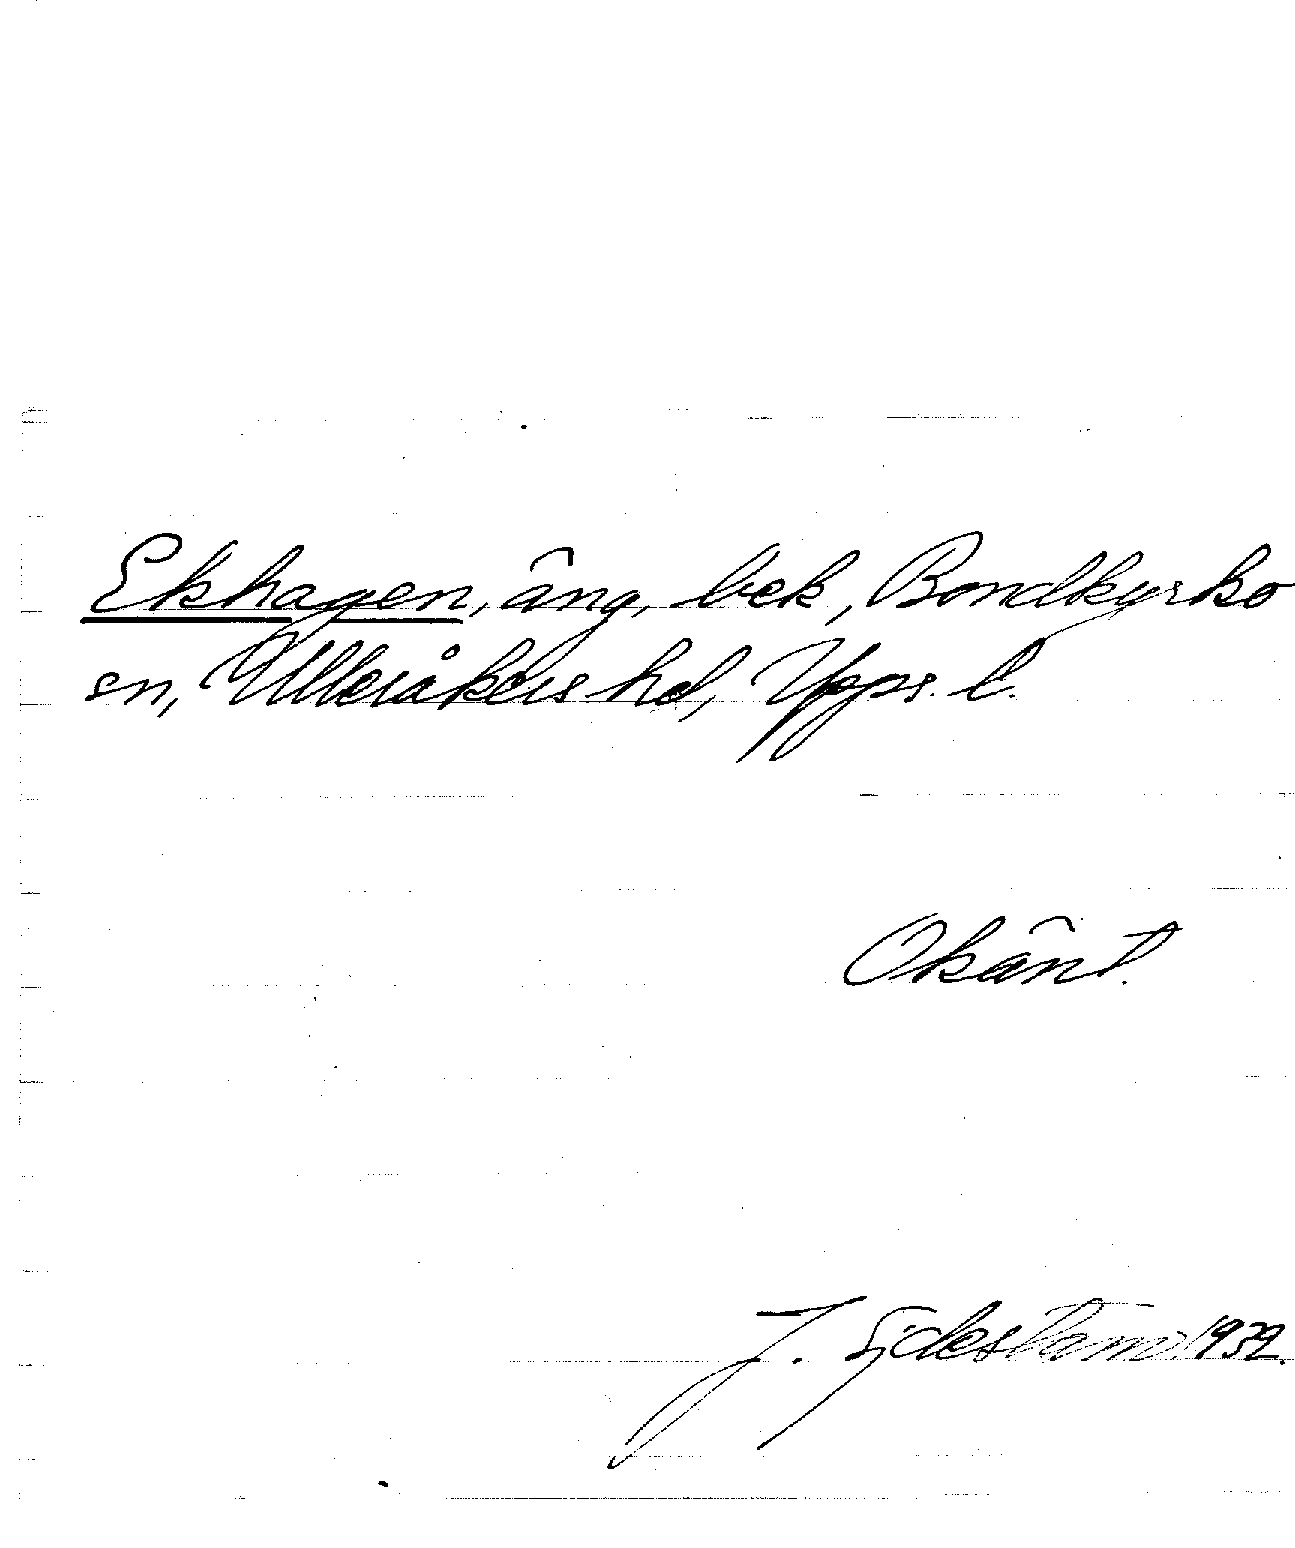 Ekhagen, äng, bek, Bondkyrko
sn, Ulleråkers hd, Upps. l.
Okänt.
J. 1932.